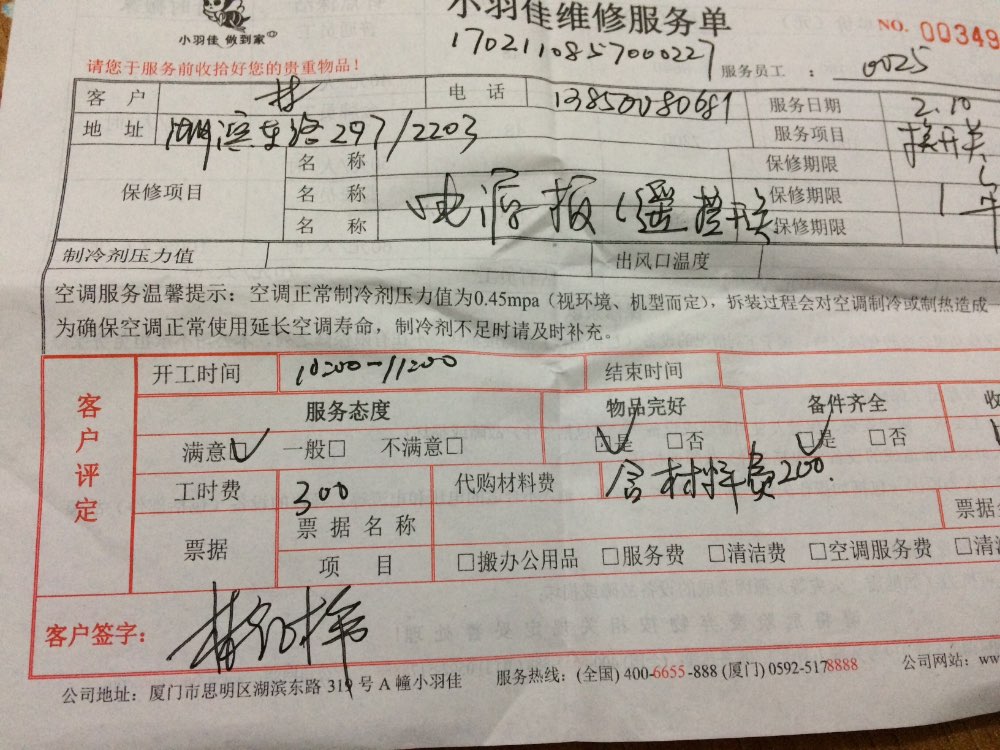 小羽佳维修服务单
小羽佳 做到家
NO. 00349
1702110857000227
服务员工 : 0025
请您于服务前收拾好您的贵重物品!
客 户 林 电 话 13850080681 服务日期 2.10
地 址 湖滨东路297/2203 服务项目 换开关
保修项目 名 称 保修期限
名 称 电源板(遥控开关 保修期限 1年
名 称 保修期限
制冷剂压力值 出风口温度
空调服务温馨提示：空调正常制冷剂压力值为0.45mpa（视环境、机型而定），拆装过程会对空调制冷或制热造成一
为确保空调正常使用延长空调寿命，制冷剂不足时请及时补充。
客户评定
开工时间 10:00-11:00 结束时间
服务态度 物品完好 备件齐全 收
满意☑ 一般□ 不满意□ ☑是 □否 ☑是 □否
工时费 300 代购材料费 含材料费200.
票据 票据名称 票据
项 目 □搬办公用品 □服务费 □清洁费 □空调服务费 □清
客户签字：
公司地址：厦门市思明区湖滨东路 319 号 A 幢小羽佳 服务热线：(全国) 400-6655-888 (厦门) 0592-5178888 公司网站：www